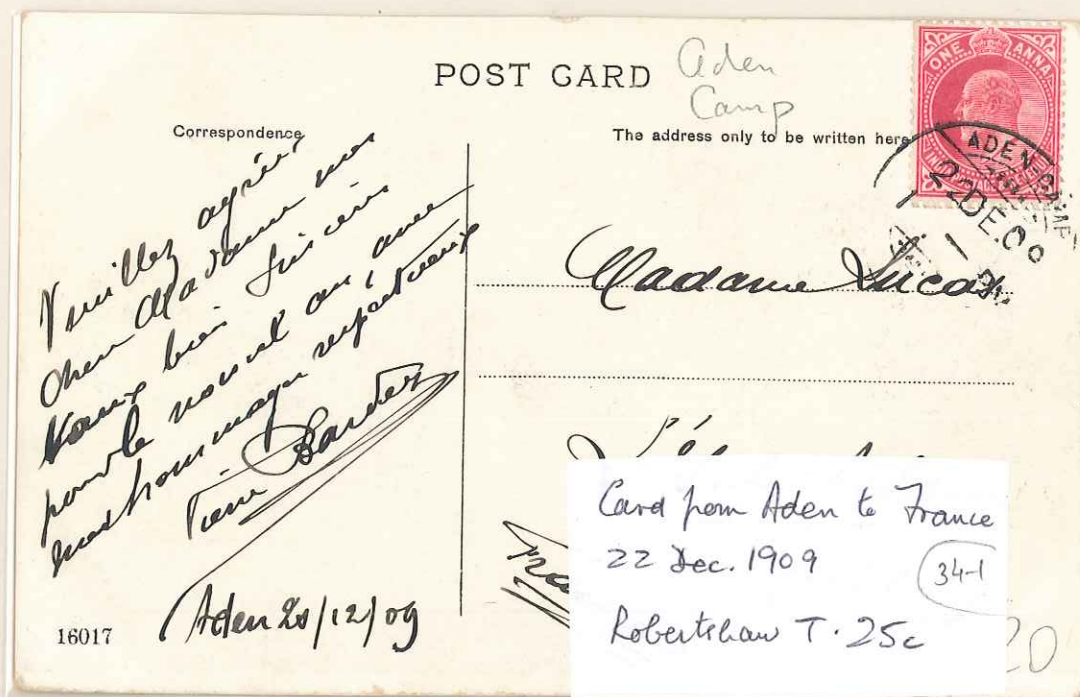 POST CARD
Aden
Camp
Correspondence
The address only to be written here
ONE ANNA
ADEN CAMP
22DE.09
1
Veuillez agréer
chère Madame mes
vœux bien sincères
pour le nouvel an, avec
mes hommages respectueux
Bardey
Aden 20/12/09
16017
Madame Lucas
Card from Aden to France
22 Dec. 1909
34-1
Robertshaw T. 25c
20